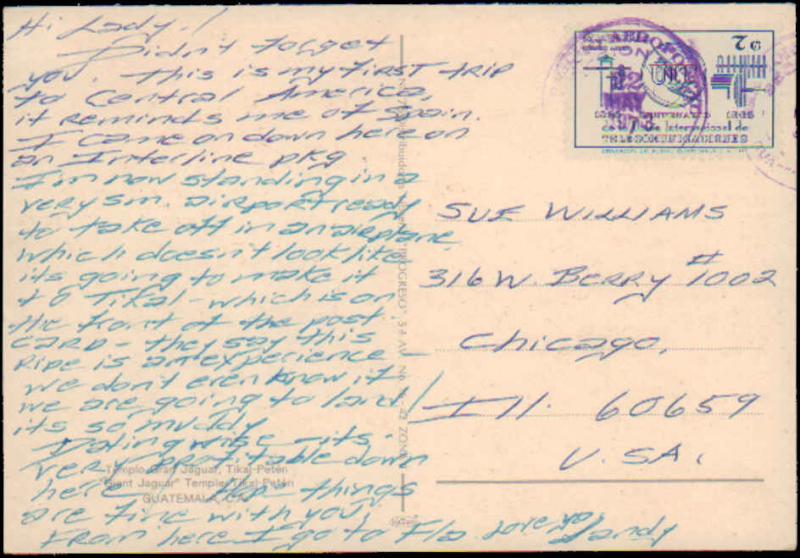 Hi Lady!
Didn't forget
you. This is my first trip
to Central America,
it reminds me of Spain.
I came on down here on
an Interline pkg.
I'm now standing in a
very sm. airport ready
to take off in an airplane
which doesn't look like
its going to make it
to Tikal - which is on
the front of the post
card - they say this
ride is an experience -
we don't even know if
we are going to land!
its so muddy.
Dating wise - its
very profitable down
here - hope things
are fine with you!
From here I go to Fla. Love ya, Sandy
Templo Gran Jaguar, Tikal-Petén
"Giant Jaguar" Temple, Tikal-Petén
GUATEMALA, C.A.
PROGRESO
AEROPO
2 ¢
UIT
CENTENARIO
de la Unión Internacional de
TELECOMUNICACIONES
SUE WILLIAMS
316 W. BERRY #1002
Chicago,
Ill. 60659
U.S.A.